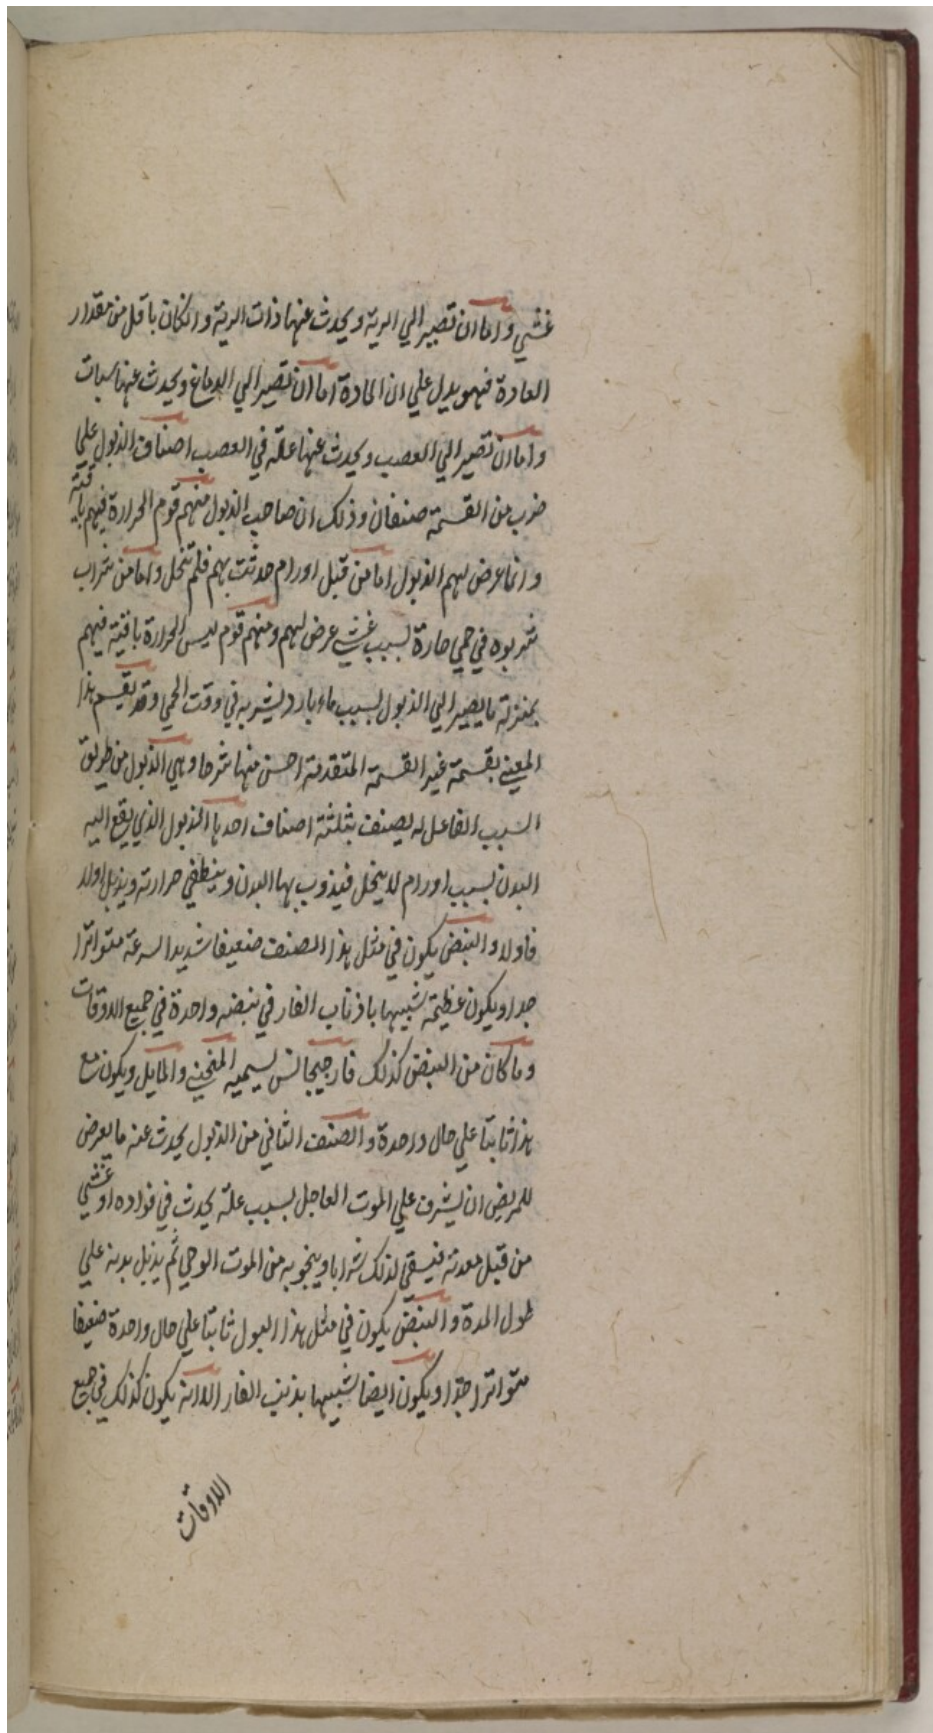 غشي واما ان تصير الي الرية ويحدث عنها ذات الرية وانكان باقل من مقدار
العادة فهو يدل علي ان المادة اما ان تصير الي الدماغ ويحدث عنها سبات
واما ان تصير الي العصب ويحدث عنها علة في العصب اصناف الذبول علي
ضرب من القسمة صنفان وذلك ان صاحب الذبول منهم قوم الحرارة فيهم باقية
وانما عرض لهم الذبول اما من قبل اورام حدثت بهم فلم تنحل واما من شراب
شربوه في حمي حارة بسبب غشي عرض لهم ومنهم قوم ليس الحرارة باقية فيهم
بمنزلة ما يصير الي الذبول بسبب ماء بارد يشربه في وقت الحمي وقد يقسم هذا
المعني بقسمة غير القسمة المتقدمة احسن منها شرحا وهي الذبول من طريق
السبب الفاعل له يصنف بثلثة اصناف احدها الذبول الذي يقع اليه
البدن بسبب اورام لا ينحل فيذوب بها البدن وينطفي حرارته ويذبل اولا
فاولا والنبض يكون في مثل هذا الصنف ضعيفا شديد السرعة متواترا
جدا ويكون عظيمة شبيها باذناب الفار في نبضه واحدة في جميع الاوقات
وما كان من النبض كذلك فارجيجانس يسميه المنحني والمايل ويكون مع
هذا ثابتا علي حال واحدة والصنف الثاني من الذبول يحدث عنه ما يعرض
للمريض ان يشرف علي الموت العاجل بسبب علة يحدث في فواده او غشي
من قبل معدته فيسقي لذلك شرابا وينجو به من الموت الوحي ثم يذبل بدنه علي
طول المدة والنبض يكون في مثل هذا البول ثابتا علي حال واحدة ضعيفا
متواترا جدا ويكون ايضا شبيها بذنب الفار الا انه يكون كذلك في جميع
الاوقات